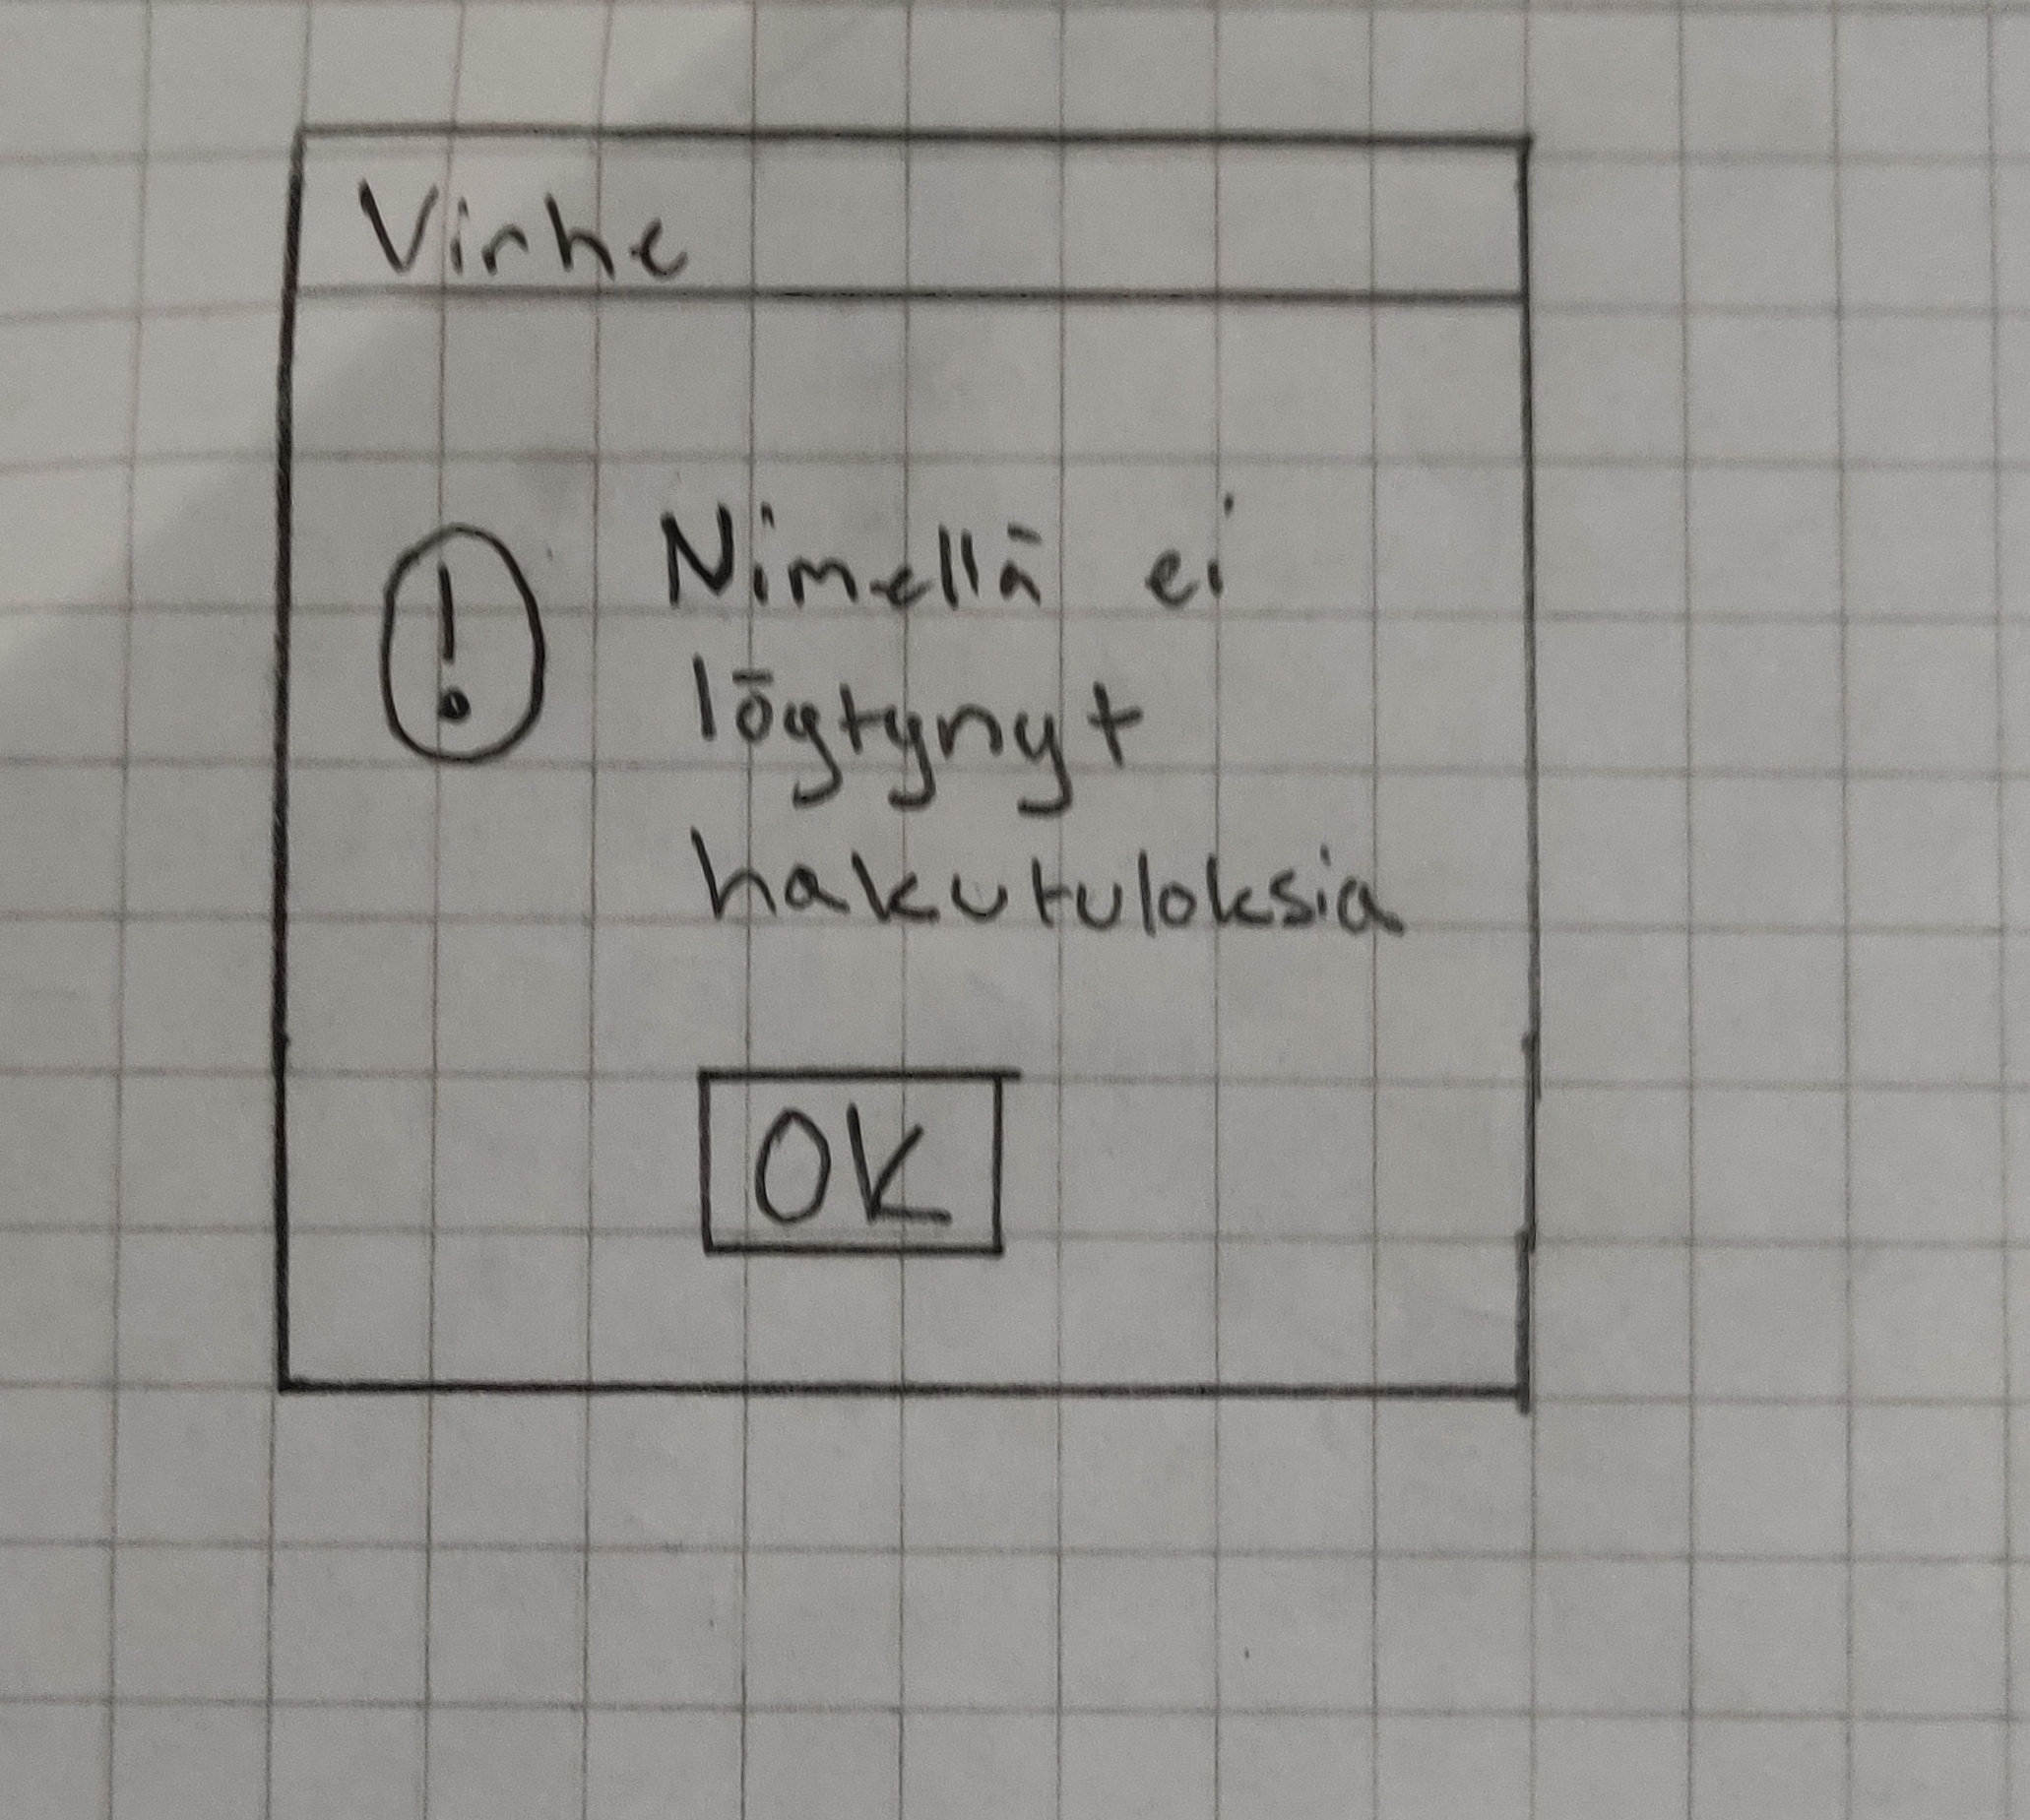 Virhe
! Nimellä ei
löytynyt
hakutuloksia
OK